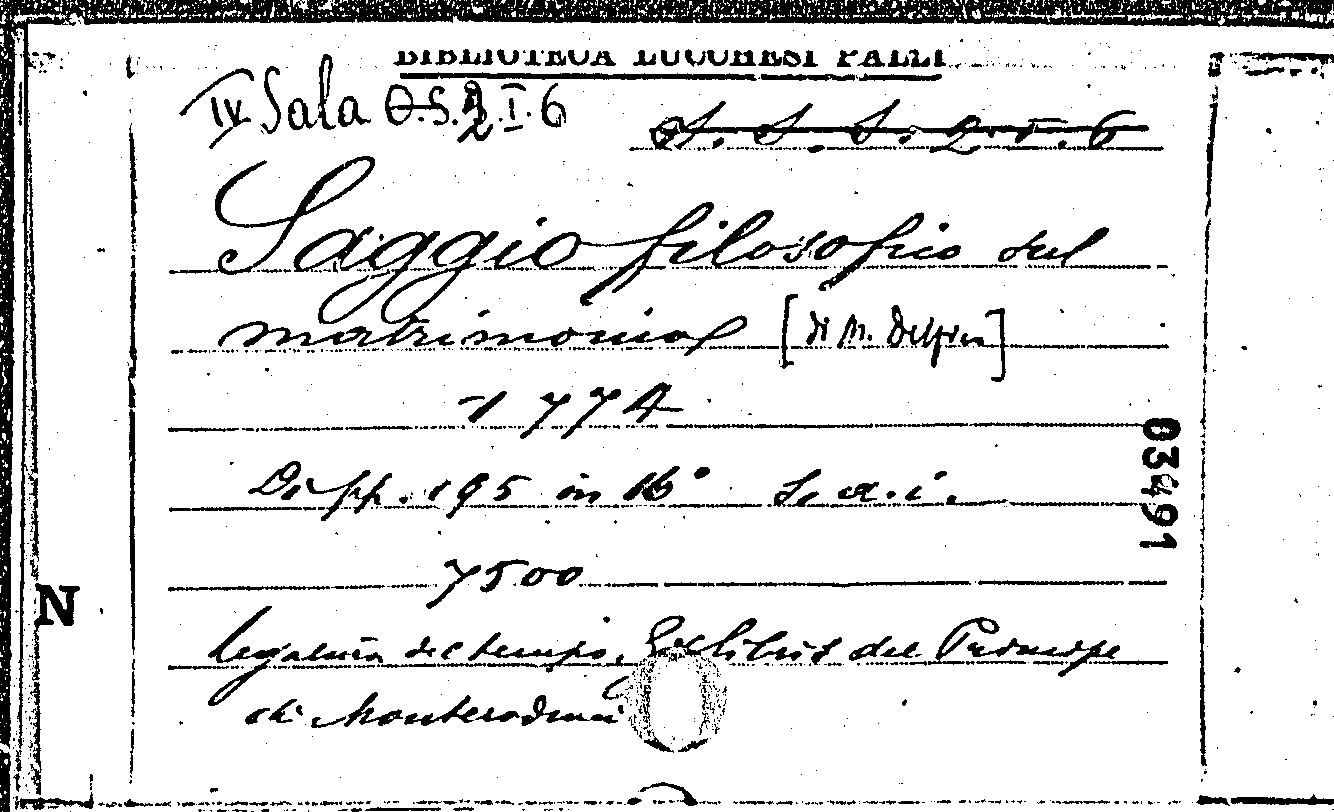 BIBLIOTECA LUCCHESI PALLI
IV Sala O.S. 2. I. 6
A. S. S. 2. I. 6
Saggio filosofico sul
matrimonio [di M. Delfico]
1774
Di pp. 195 in 16° S. a. i.
03491
7500
N
Legatura del tempo. Ex libris del Principe
di Monteroduni